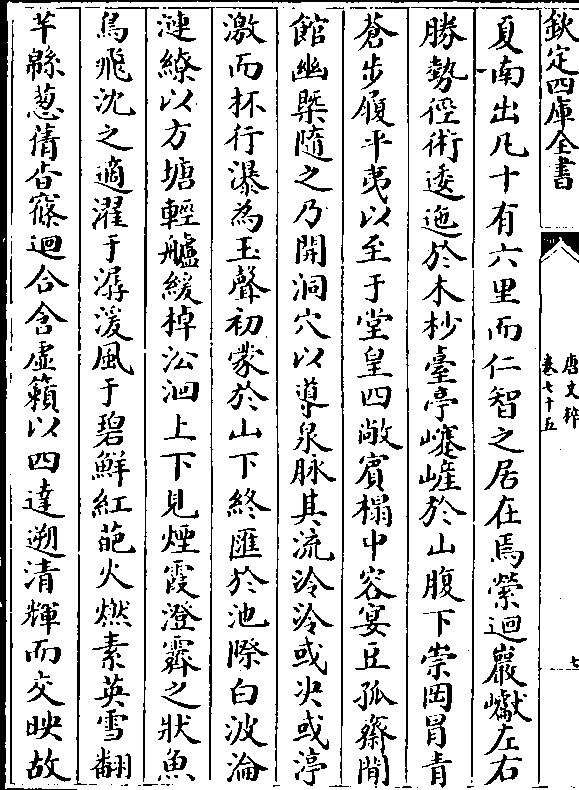 欽定四庫全書
唐文粹
卷七十五
七
夏南出凡十有六里而仁智之居在焉縈迴巖巘左右
勝勢徑術逶迤於木杪臺亭㠊嵼於山腹下崇岡冐青
蒼步履平夷以至于堂皇四敞賓榻中容宴豆孤齋閒
館幽槩隨之乃開洞穴以導泉脉其流泠泠或決或渟
激而杯行瀑為玉聲初蒙於山下終匯於池際白波淪
漣繚以方塘輕艫緩棹㳂洄上下見煙霞澄霽之狀魚
鳥飛沈之適濯于潺湲風于碧鮮紅葩火燃素英雪翻
芊緜葱蒨杳窱迴合含虛籟以四達遡清輝而交映故